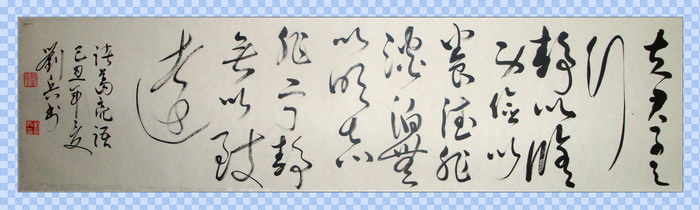 夫君子之
行
静以修
身俭以
养德非
澹泊无
以明志
非宁静
无以致
远
诸葛亮语
己丑年夏
刘兵书